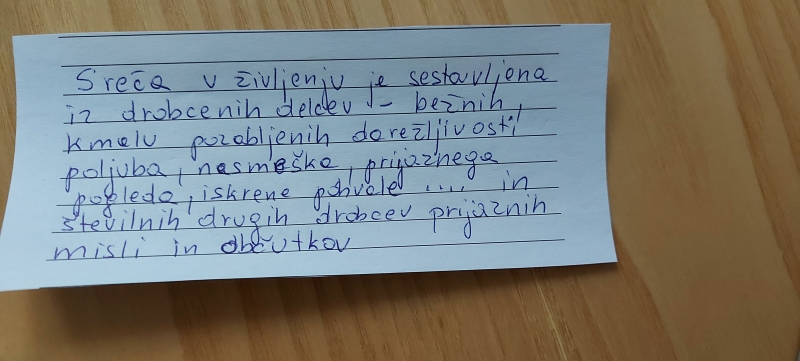 Sreča v življenju je sestavljena
iz drobcenih delcev - bežnih,
kmalu pozabljenih darežljivosti
poljuba, nasmeška, prijaznega
pogleda, iskrene pohvale .... in
številnih drugih drobcev prijaznih
misli in občutkov